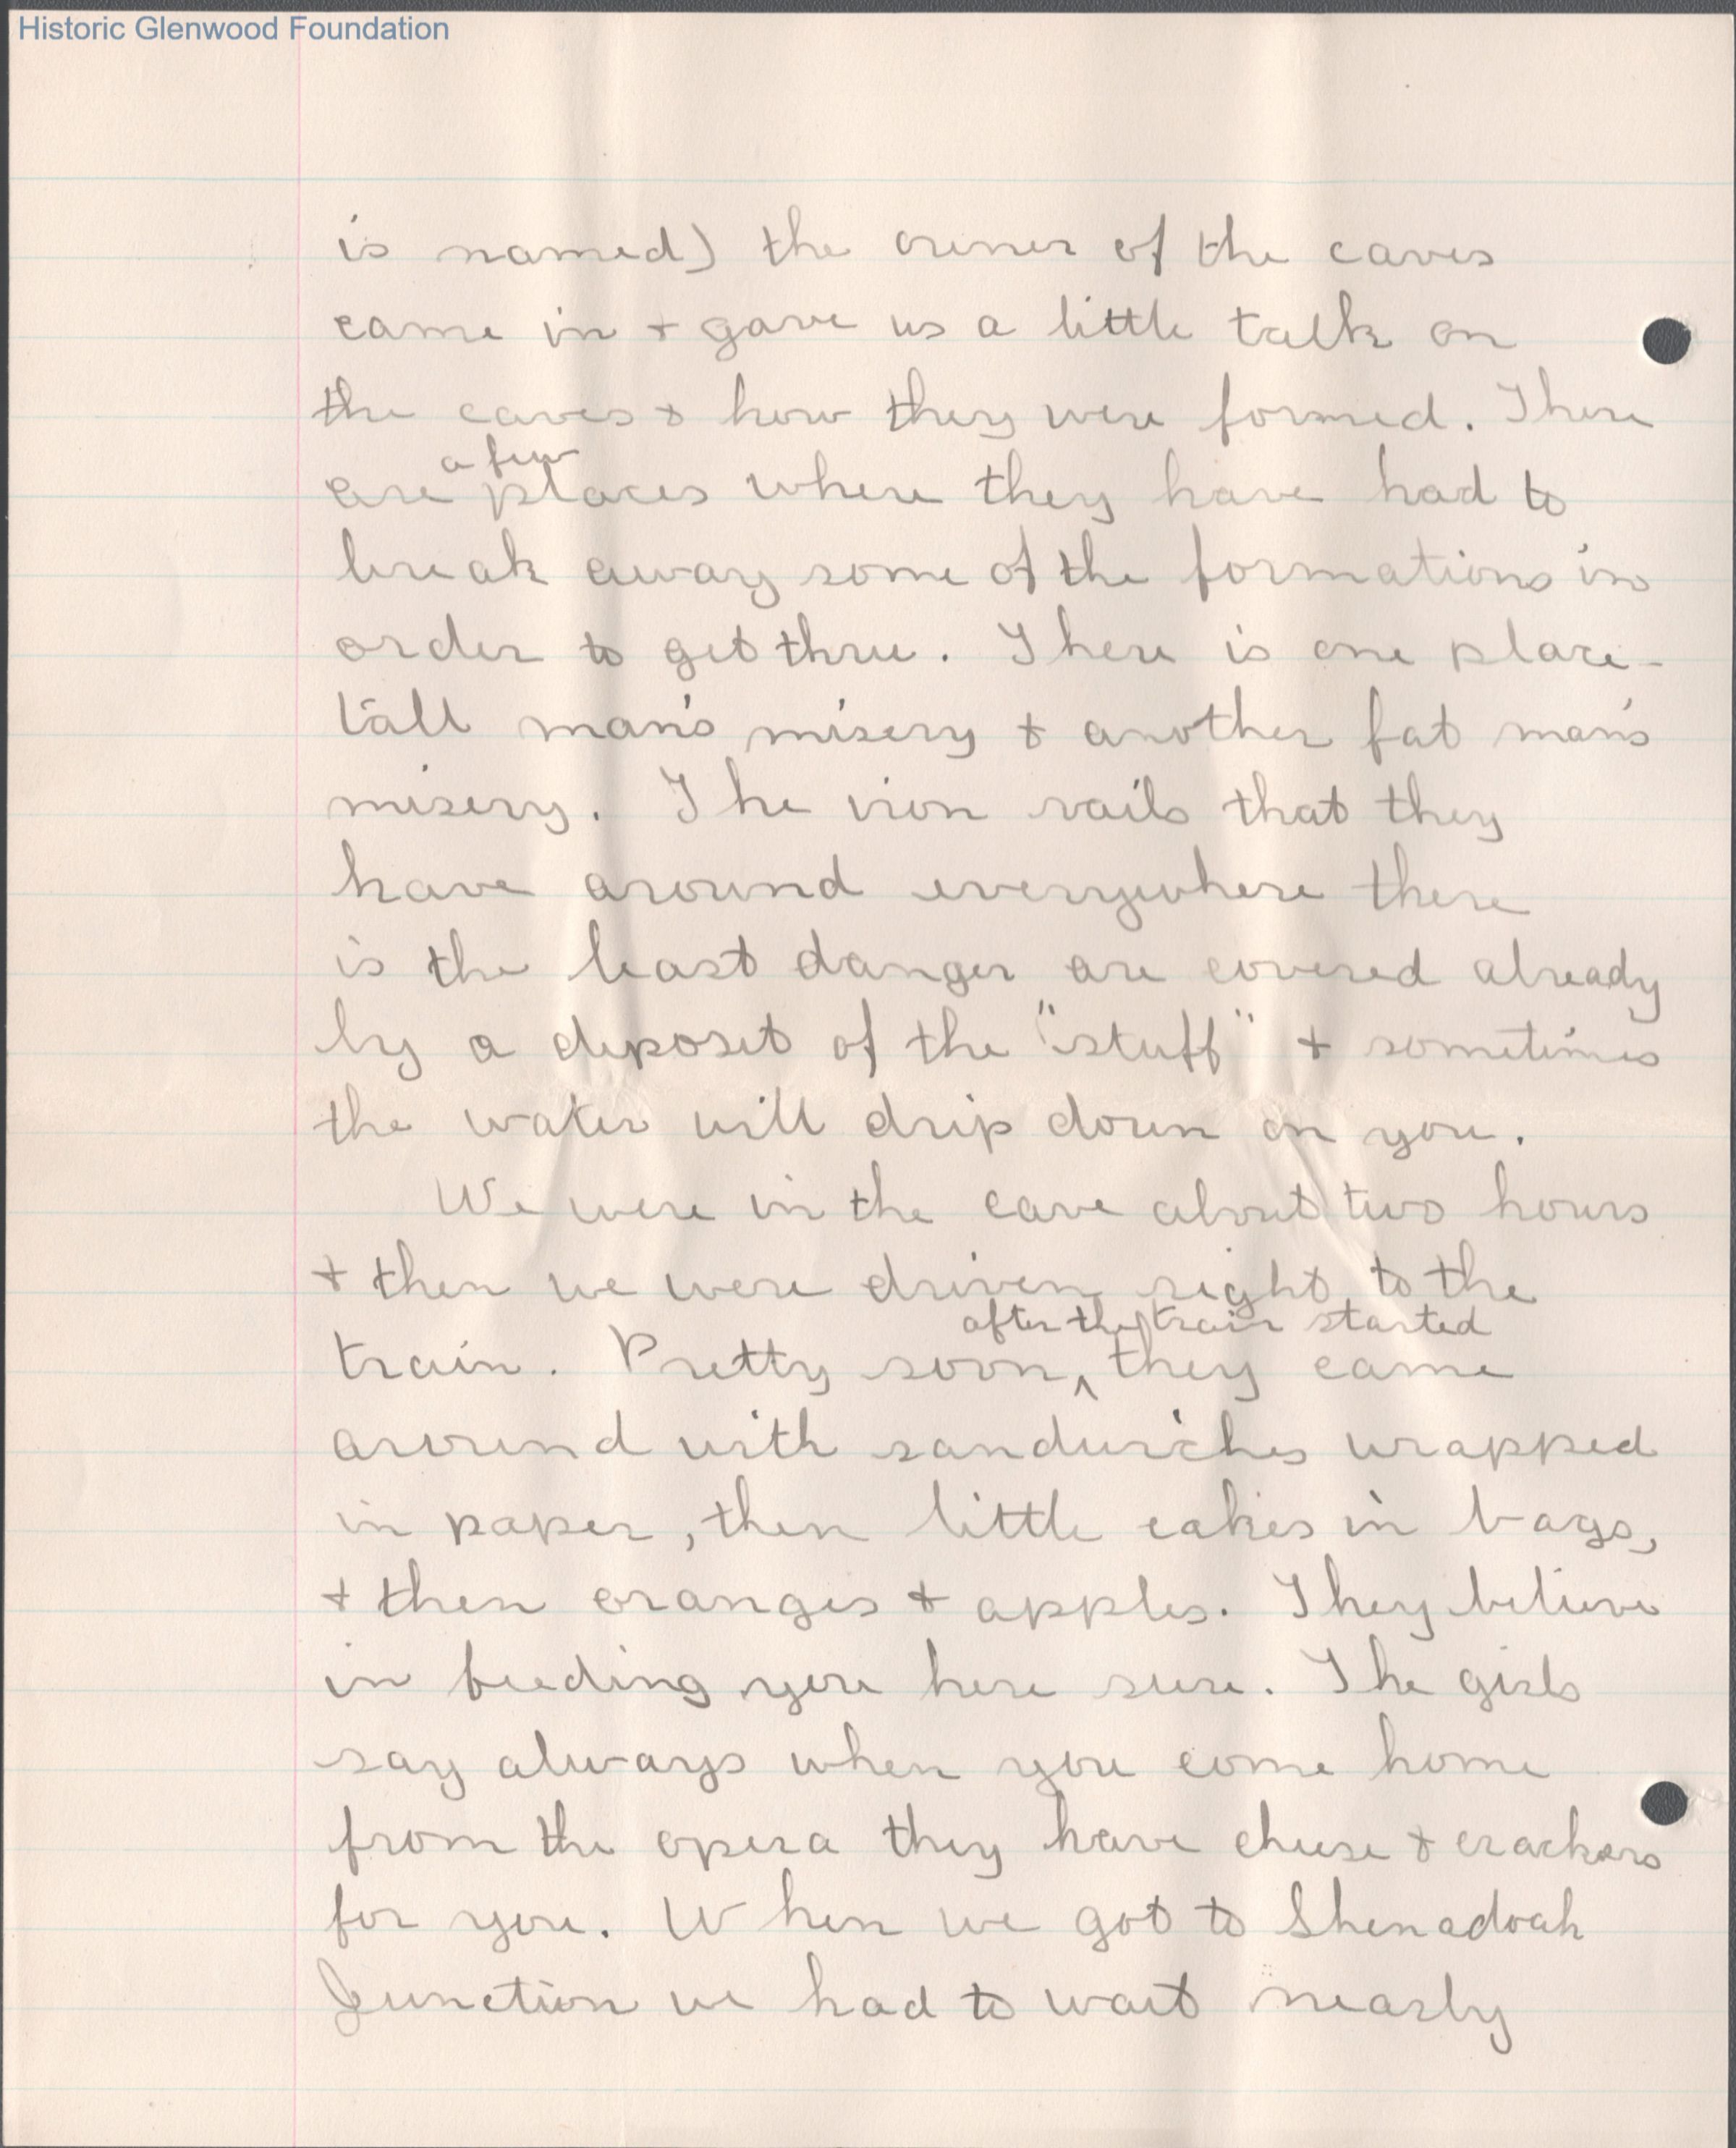 Historic Glenwood Foundation
is named) the owner of the caves
came in + gave us a little talk on
the caves + how they were formed. There
a few
are places where they have had to
break away some of the formations in
order to get thru. There is one place -
tall man's misery + another fat man's
misery. The iron rails that they
have around everywhere there
is the least danger are covered already
by a deposit of the "stuff" + sometimes
the water will drip down on you.
We were in the cave about two hours
+ then we were driven right to the
after the train started
train. Pretty soon, ^ they came
around with sandwiches wrapped
in paper, then little cakes in bags,
+ then oranges + apples. They believe
in feeding you here sure. The girls
say always when you come home
from the opera they have cheese + crackers
for you. When we got to Shenadoah
Junction we had to wait nearly